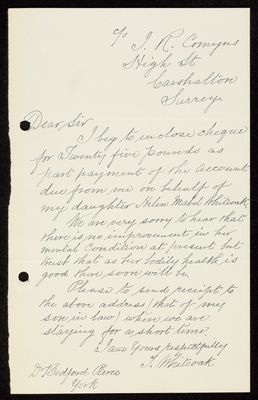 c/o J. R. Comyns
High St
Carshalton
Surrey.
Dear Sir
I beg to enclose cheque
for Twenty five pounds as
part payment of the account
due from me on behalf of
my daughter Helen Mabel Whitcoak
We are very sorry to hear that
there is no improvement in her
mental condition at present but
trust that as her bodily health is
good there soon will be.
Please to send receipt to
the above address (that of my
son in law) where we are
staying for a short time.
I am Yours respectfully
T. Whitcoak
Dr Bedford Pierce
York